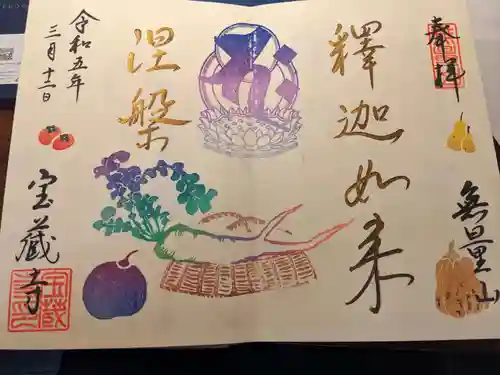 奉拝
無量山
釋迦如来
涅槃
令和五年
三月十二日
宝蔵寺